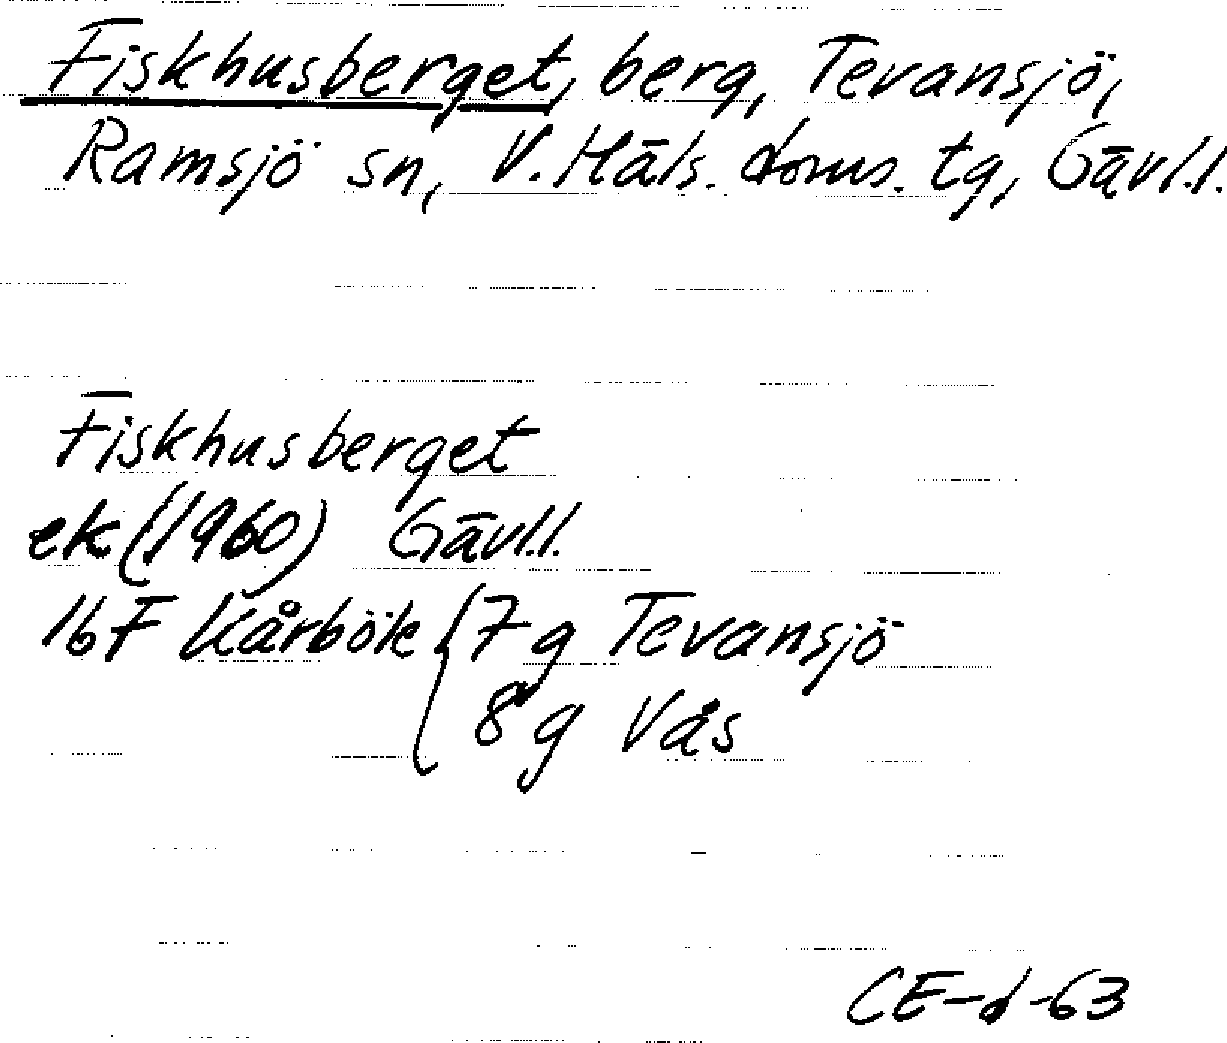 Fiskhusberget, berg, Tevansjö,
Ramsjö sn, V. Häls. doms. tg, Gävl.l.
Fiskhusberget
ek (1960) Gävl.l.
16F Kårböle { 7 g Tevansjö
8 g Vås
CE-d-63